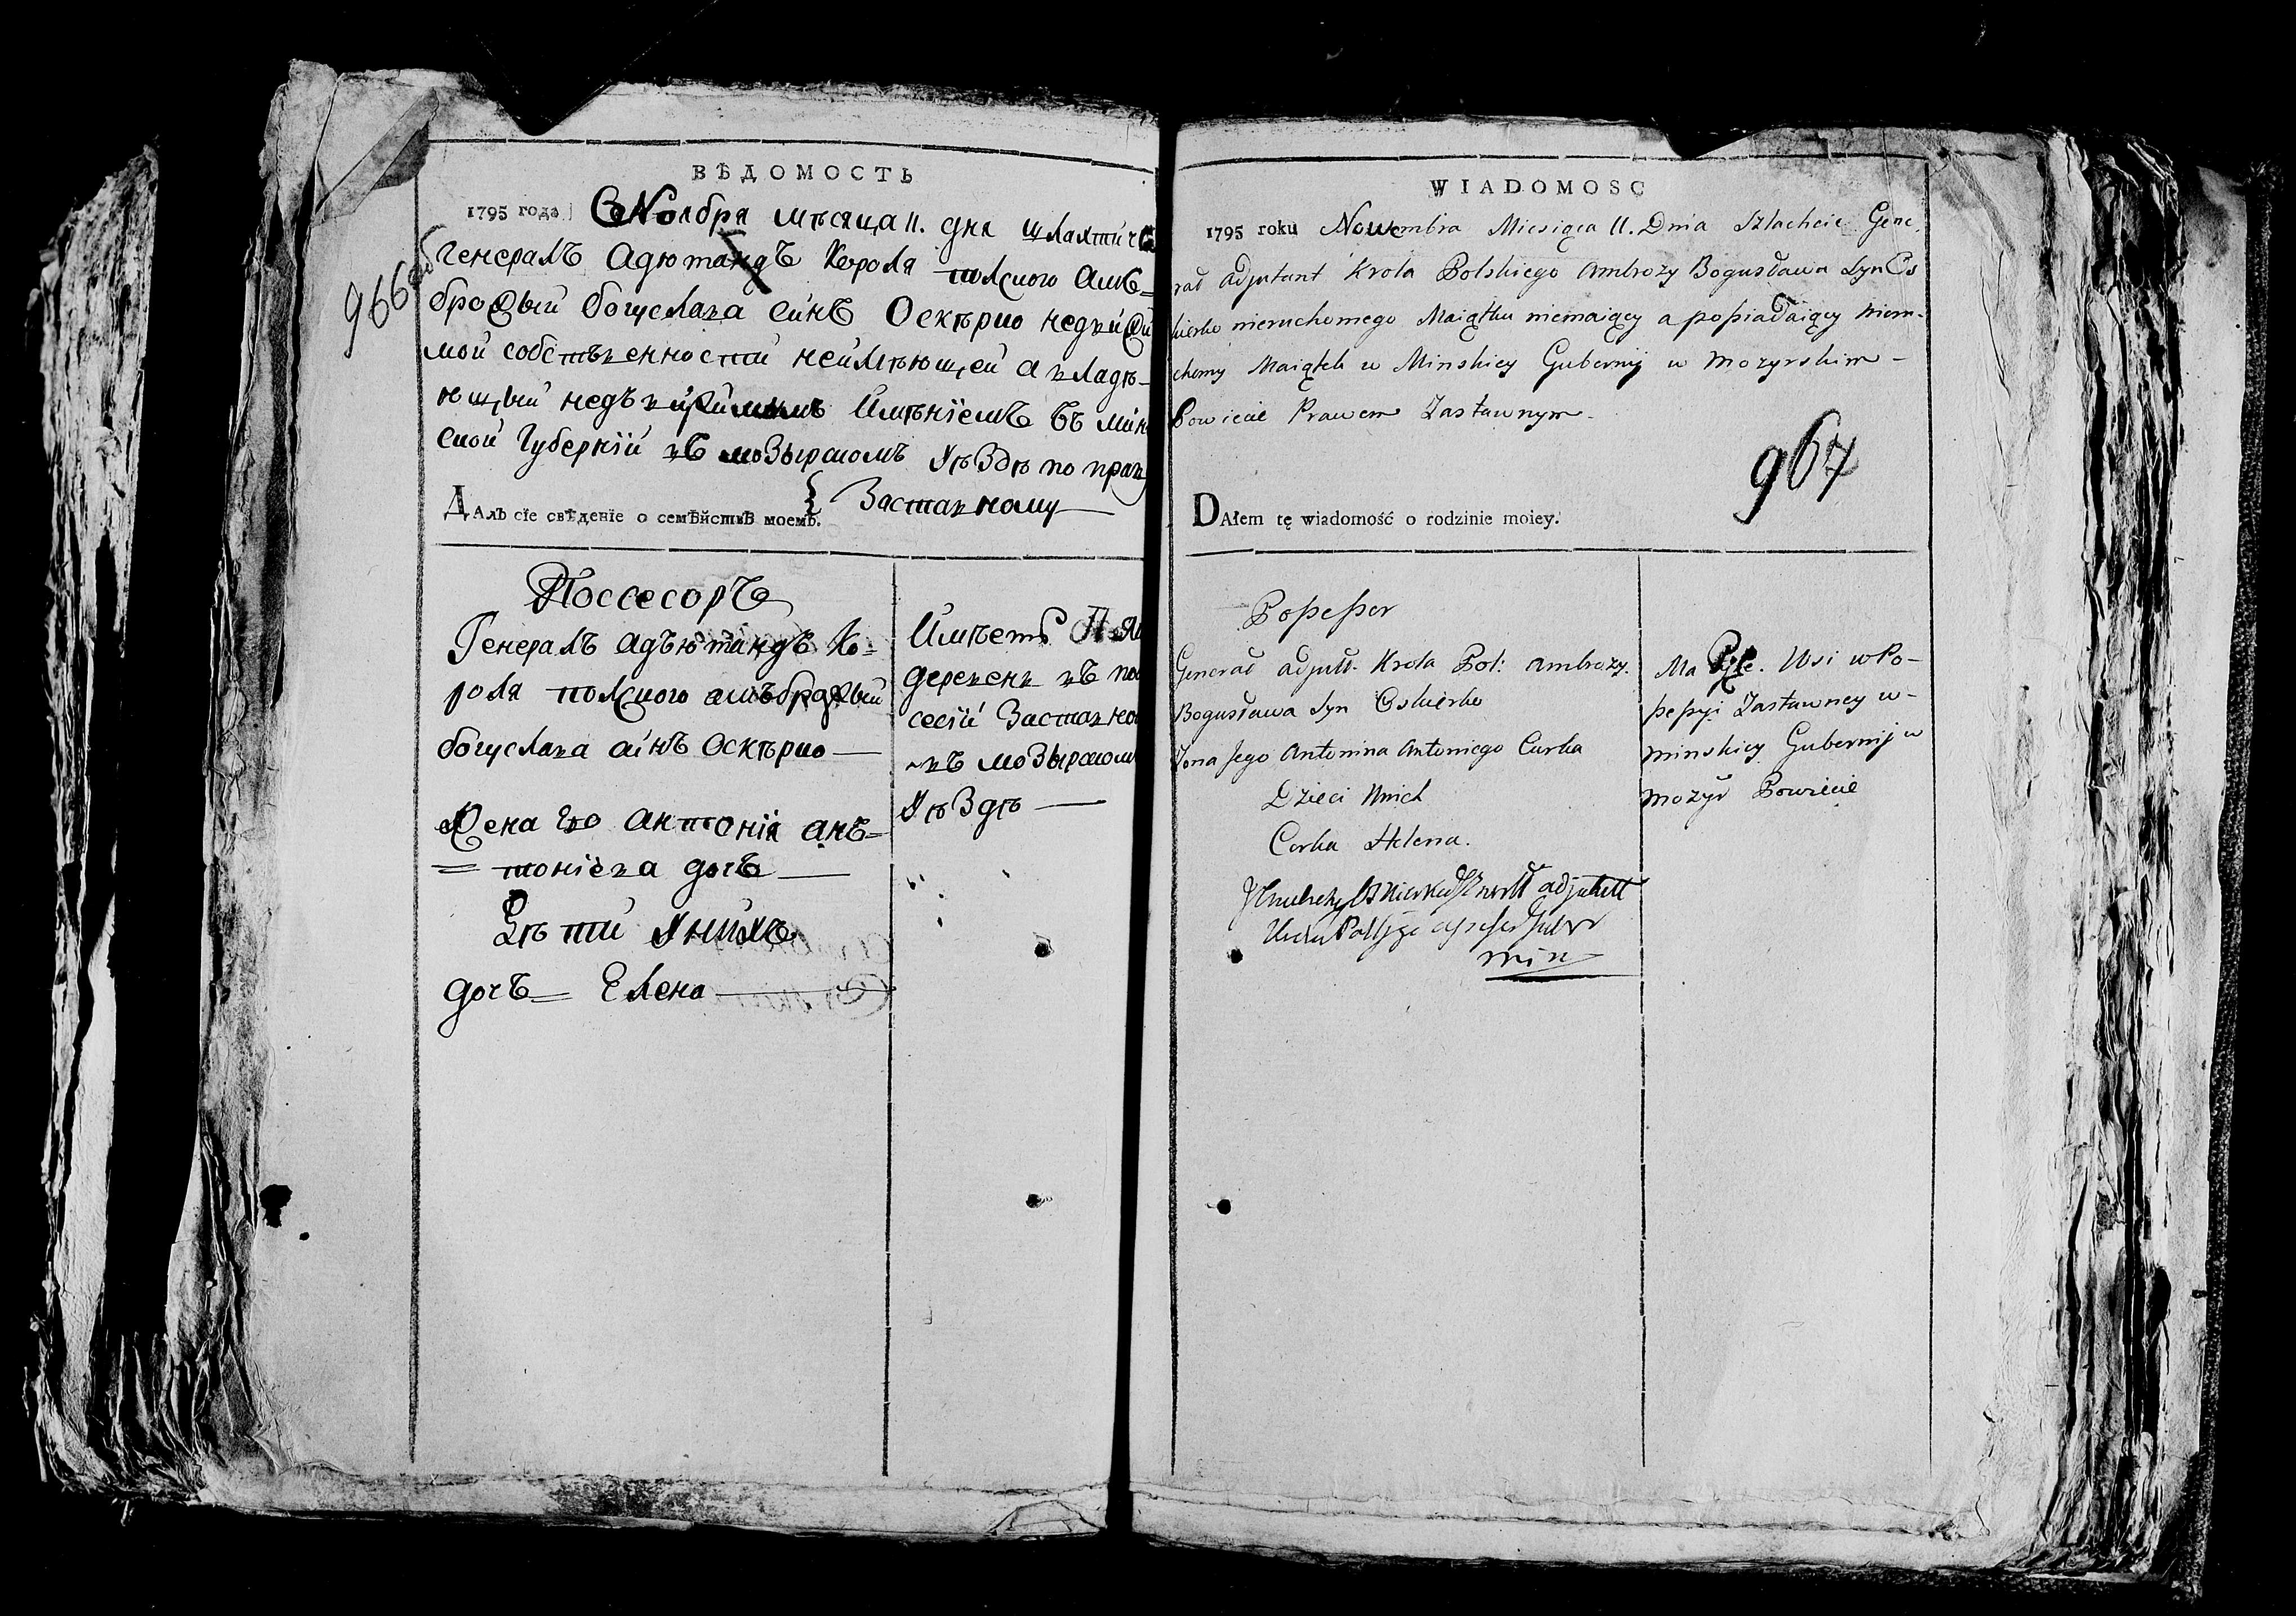 966 об
ВѢДОМОСТЬ
1795 года Ноября мѣсяца 11. дня шляхтичъ
генералъ адютандъ короля полского амъ=
брожый богуслава синъ Оскѣрко недвижи
мой собственности неимѣющей а владѣ-
ющый недвижимымъ Имѣнїемъ въ мин
ской губернїй въ мозырскомъ уѣздѣ по прав
заставному
ДАлъ сїе свѣденїе о семѣйствѣ моемъ.
Поссесоръ
Генералъ адъютандъ ко=
роля полского амъброжый
богуслава синъ Оскѣрко
Жена его антонія ан=
=тонїева дочъ
Дѣти у нихъ
дочъ= Елена
Имѣетъ
деревень въ по
сесїй заставно
въ мозырскомъ
уѣздѣ
WIADOMOSC
967
1795 roku Nowembra Miesiąca 11. Dnia Szlachcic Gene,
rał adjutant Krola Polskiego Ambrozy Bogusława Syn Os
kierko nieruchomego Maiątku niemaiący a poßiadaiący nieru-
chomy Maiątek w Minskiey Gubernij w Mozyrskim -
Powiecie Prawem Zastawnym.
DAłem tę wiadomość o rodzinie moiey.
Poßeßor
Generał adjutt. Krola Pol: Ambrozy.
Bogusława Syn Oskierko
Zona Jego Antonina Antoniego Curka
Dzieci Unich
Curka Helena.
adjutett
min
Ma Wsi w Po-
ßeßyi Zastawney w-
minskiey Gubernij w
Mozyr Powiecie